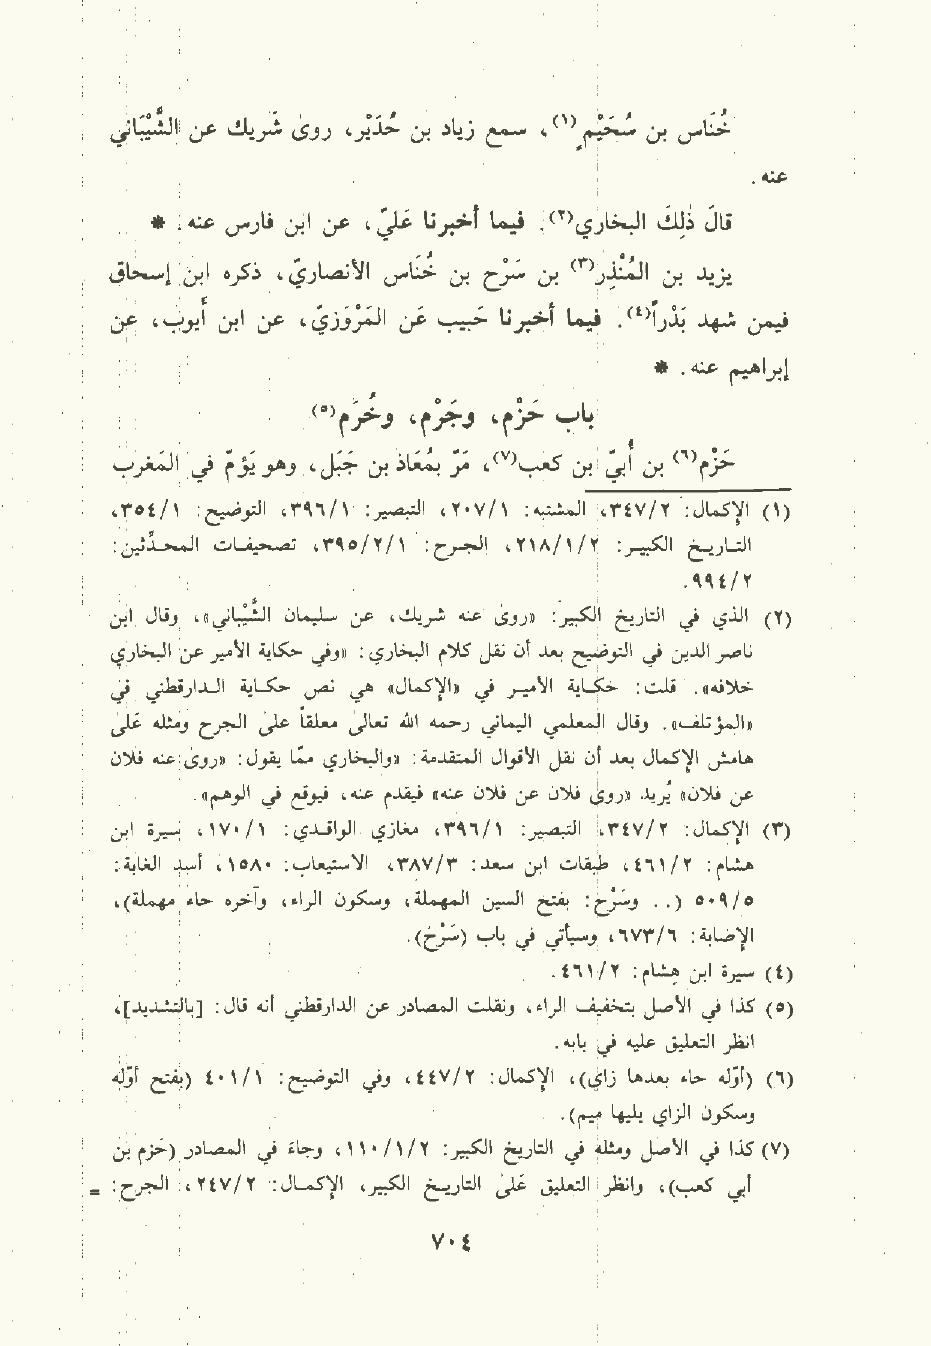 خُنَاس بن سُحَيْمٍ(١)، سمع زياد بن حُدَيْر، روىٰ شَريك عن الشَّيْبَاني
عنه.
قالَ ذٰلِكَ البخاري(٢). فيما أخبرنا عَليّ، عن ابن فارس عنه. *
يزيد بن المُنْذِر(٣) بن سَرْح بن خُنَاس الأنصاريّ، ذكره ابن إسحاق
فيمن شهد بَدْراً(٤). فيما أخبرنا حَبيب عَن المَرْوَزيّ، عن ابن أيوب، عن
إبراهيم عنه. *
باب حَزْم، وجَرْم، وخُرَم(٥)
حَزْم(٦) بن أُبيّ بن كعب(٧)، مَرّ بمُعَاذ بن جَبَل، وهو يَؤمّ في المَغرب
(١) الإكمال: ٣٤٧/٢، المشتبه: ٢٠٧/١، التبصير: ٣٩٦/١، التوضيح: ٣٥٤/١،
التاريخ الكبير: ٢١٨/١/٢، الجرح: ٣٩٥/٢/١، تصحيفات المحدّثين:
٩٩٤/٢.
(٢) الذي في التاريخ الكبير: «روىٰ عنه شريك، عن سليمان الشَّيباني»، وقال ابن
ناصر الدين في التوضيح بعد أن نقل كلام البخاري: «وفي حكاية الأمير عن البخاري
خلافه». قلت: حكاية الأمير في «الإكمال» هي نص حكاية الدارقطني في
«المؤتلف». وقال المعلمي اليماني رحمه الله تعالىٰ معلقاً علىٰ الجرح ومثله عَلىٰ
هامش الإكمال بعد أن نقل الأقوال المتقدمة: «والبخاري ممّا يقول: «روىٰ عنه فلان
عن فلان» يُريد. «روى فلان عن فلان عنه» فيقدم عنه، فيوقع في الوهم».
(٣) الإكمال: ٣٤٧/٢، التبصير: ٣٩٦/١، مغازي الواقدي: ١٧٠/١، سيرة ابن
هشام: ٤٦١/٢، طبقات ابن سعد: ٣٨٧/٣، الاستيعاب: ١٥٨٠، أسد الغابة:
٥٠٩/٥ (.. وسَرْح: بفتح السين المهملة، وسكون الراء، وآخره حاء مهملة)،
الإصَابة: ٦٧٣/٦، وسيأتي في باب (سَرْح).
(٤) سيرة ابن هِشام: ٤٦١/٢.
(٥) كذا في الأصل بتخفيف الراء، ونقلت المصادر عن الدارقطني أنه قال: [بالتشديد]،
انظر التعليق عليه في بابه.
(٦) (أوّله حاء بعدها زاي)، الإكمال: ٤٤٧/٢، وفي التوضيح: ٤٠١/١ (بفتح أوّله
وسكون الزاي يليها ميم).
(٧) كذا في الأصل ومثله في التاريخ الكبير: ١١٠/١/٢، وجاءَ في المصادر (حَزم بن
أبي كعب)، وانظر التعليق عَلىٰ التاريخ الكبير، الإكمال: ٢٤٧/٢، الجرح: =
٧٠٤